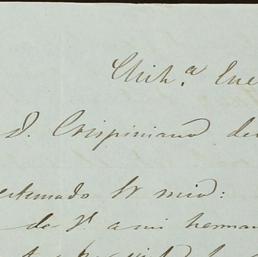 Chih.ª Ene
D. Crispiniano del
estimado Sr mio:
de Vd a mi herman